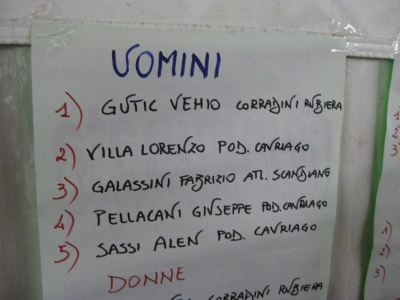 UOMINI
1) GUTIC VEHIO CORRADINI RUBIERA
2) VILLA LORENZO POD. CAVRIAGO
3) GALASSINI FABRIZIO ATL. SCANDIANO
4) PELLACANI GIUSEPPE POD. CAVRIAGO
5) SASSI ALEN POD. CAVRIAGO
DONNE
CORRADINI RUBIERA
1)
2)
3)
1)
2)
3)